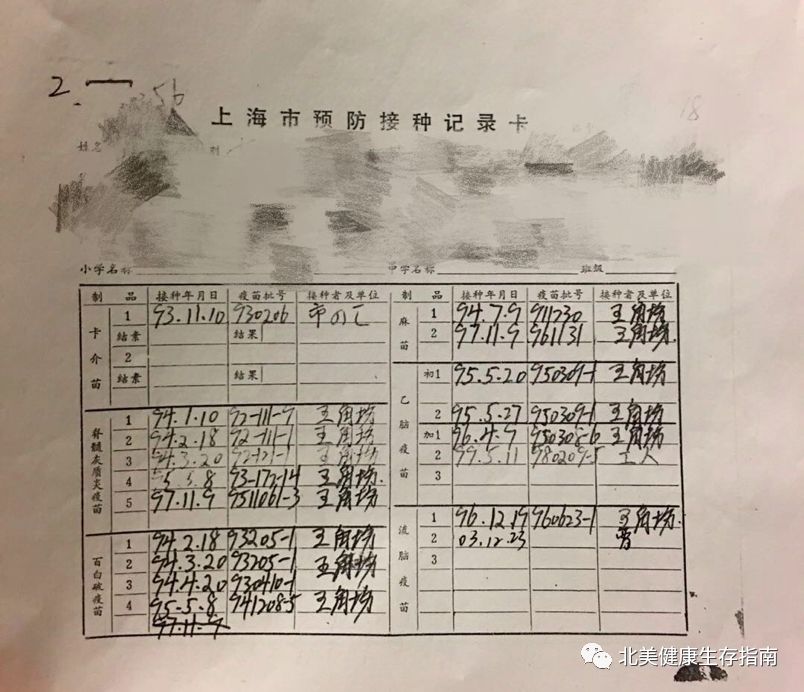 2.
56
18
上海市预防接种记录卡
姓名
小学名称 中学名称 班级
制品 接种年月日 疫苗批号 接种者及单位
卡介苗
1 93.11.10 930206
结素 结果
2
结素 结果
脊髓灰质炎疫苗
1 94.1.10 92-111-7 王角场
2 94.2.18 92-111-1 王角场
3 94.3.20 王角场
4 95.3.8 93-172-14 王角场
5 97.11.9 9511061-3 王角场
百白破疫苗
1 94.2.18 93205-1 王角场
2 94.3.20 93205-1 王角场
3 94.4.20 930410-1 王角场
4 95.5.8 941208-5 王角场
97.11.9
制品 接种年月日 疫苗批号 接种者及单位
麻苗
1 94.7.9 911230 王角场
2 97.11.9 961131 王角场
乙脑疫苗
初1 95.5.20 950309-1 王角场
2 95.5.27 950309-1 王角场
加1 96.4.9 950308-6 王角场
2 99.5.11 980209-5
3
流脑疫苗
1 96.12.19 960623-1 王角场
2 03.12.23
3
北美健康生存指南